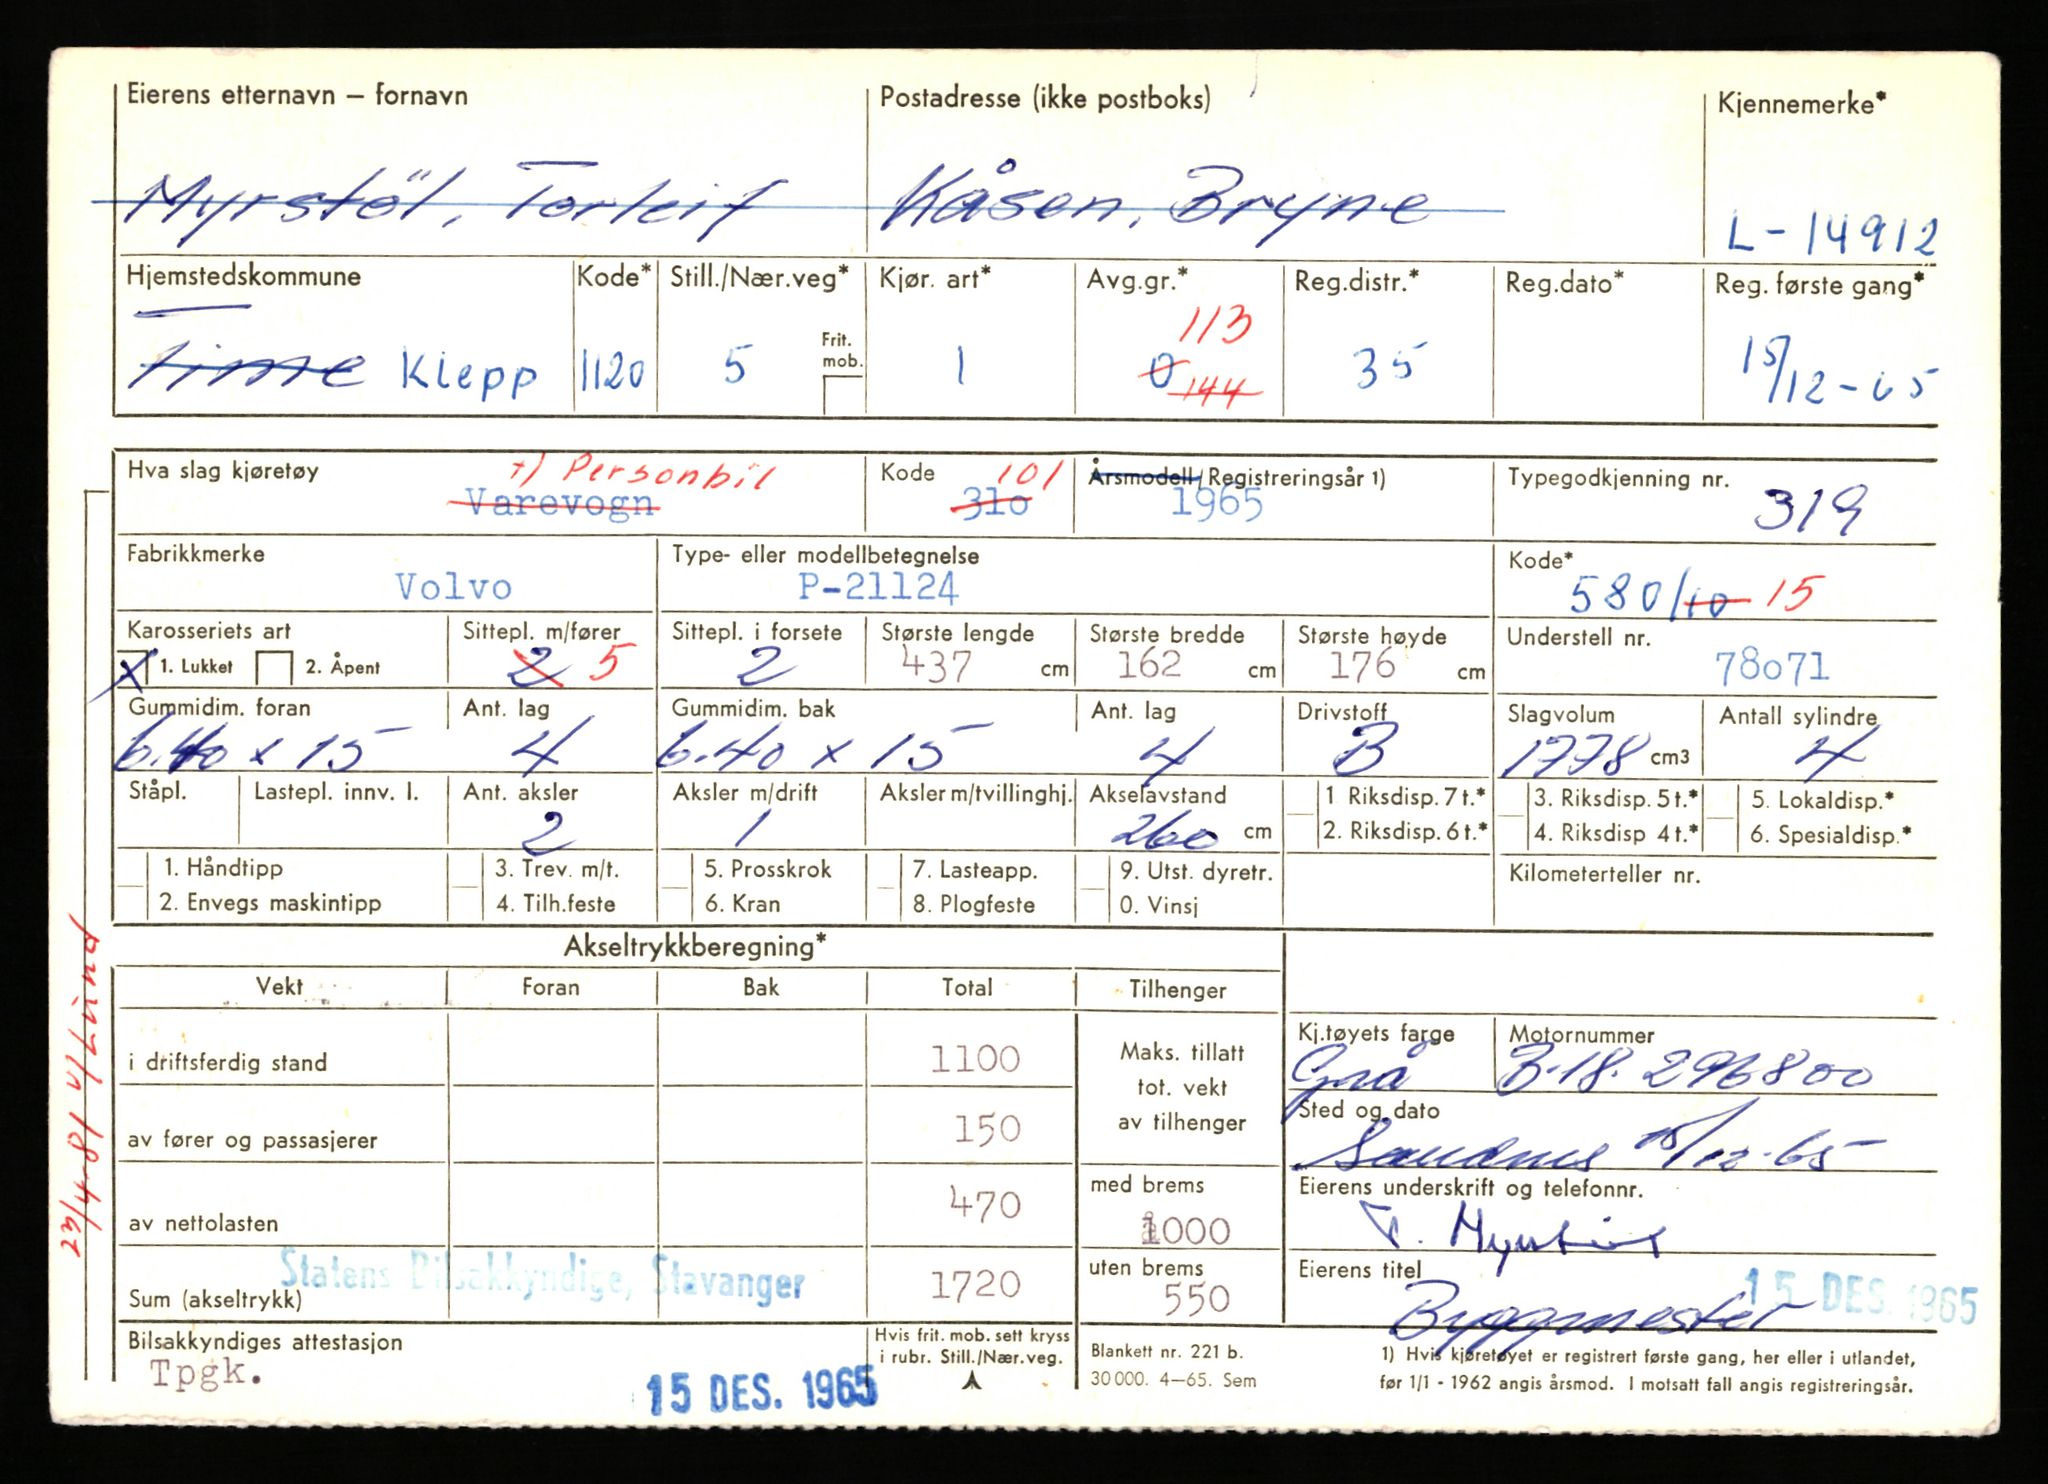 Eierens etternavn – fornavn Postadresse (ikke postboks) Kjennemerke*
Myrstöl, Torleif Kåsen, Bryne L-14912
Hjemstedskommune Kode* Still./Nær.veg* Kjør. art* Avg.gr.* Reg.distr.* Reg.dato* Reg. første gang*
Time Klepp 1120 5 Frit. mob. 1 0 144 113 35 15/12-65
Hva slag kjøretøy Kode Årsmodell/Registreringsår 1) Typegodkjenning nr.
+) Personbil Varevogn 310 101 1965 319
Fabrikkmerke Type- eller modellbetegnelse Kode*
Volvo P-21124 580/10 15
Karosseriets art Sittepl. m/fører Sittepl. i forsete Største lengde Største bredde Største høyde Understell nr.
X 1. Lukket 2. Åpent 2 5 2 437 cm 162 cm 176 cm 78071
Gummidim. foran Ant. lag Gummidim. bak Ant. lag Drivstoff Slagvolum Antall sylindre
6.40 x 15 4 6.40 x 15 4 B 1778 cm3 4
Ståpl. Lastepl. innv. l. Ant. aksler Aksler m/drift Aksler m/tvillinghj. Akselavstand 1 Riksdisp. 7 t.* 3. Riksdisp. 5 t.* 5. Lokaldisp.*
2 1 260 cm 2. Riksdisp. 6 t.* 4. Riksdisp 4 t.* 6. Spesialdisp.*
1. Håndtipp 3. Trev. m/t. 5. Prosskrok 7. Lasteapp. 9. Utst. dyretr. Kilometerteller nr.
2. Envegs maskintipp 4. Tilh.feste 6. Kran 8. Plogfeste 0. Vinsj
Akseltrykkberegning*
Vekt Foran Bak Total Tilhenger
Kj.tøyets farge Motornummer
i driftsferdig stand 1100 Maks. tillatt tot. vekt av tilhenger Grå B.18. 296800
Sted og dato
av fører og passasjerer 150 Sandnes 15/12-65
med brems Eierens underskrift og telefonnr.
av nettolasten 470 1000 T. Myrstöl
Statens Bilsakkyndige, Stavanger
uten brems Eierens titel 15 DES. 1965
Sum (akseltrykk) 1720 550 Byggmester
Bilsakkyndiges attestasjon Hvis frit. mob. sett kryss i rubr. Still./Nær.veg. Blankett nr. 221 b. 1) Hvis kjøretøyet er registrert første gang, her eller i utlandet,
Tpgk. 15 DES. 1965 30 000. 4–65. Sem før 1/1 - 1962 angis årsmod. I motsatt fall angis registreringsår.
23/4-81 V/Lund